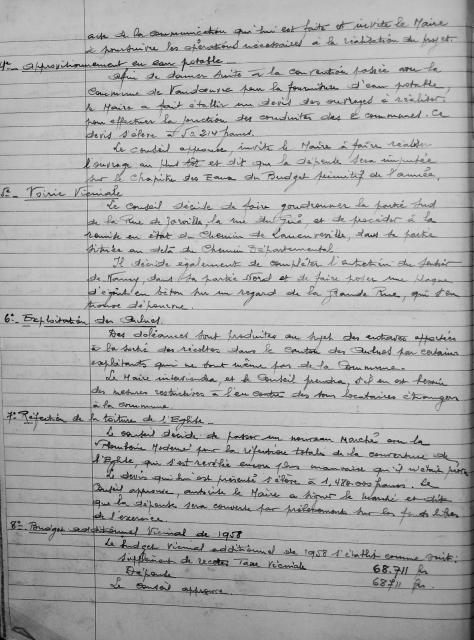 acte de la communication qui lui est faite et invite le Maire
à poursuivre les opérations nécessaires à la réalisation du projet.
4°- Approvisionnement en eau potable
Afin de donner suite à la convention passée avec la
Commune de Vandœuvre pour la fourniture d'eau potable,
le Maire a fait établir un devis des ouvrages à réaliser
pour effectuer la jonction des conduites des 2 communes. Ce
devis s'élève à 214 francs.
Le Conseil approuve, invite le Maire à faire réaliser
l'ouvrage au plus tôt et dit que la dépense sera imputée
sur le Chapitre des Eaux du Budget primitif de l'année.
5°- Voirie Vicinale
Le Conseil décide de faire goudronner la partie Sud
de la Rue de Jarville, la rue du Gué, et de procéder à la
remise en état du Chemin de Laneuveville, dans la partie
située au delà du Chemin Départemental.
Il décide également de compléter l'utilisation du
de Nancy, dans sa partie Nord et de faire poser une plaque
d'égout en béton sur un regard de la Grande Rue, qui s'en
trouve dépourvu.
6°- Exploitation des
Des doléances sont produites au sujet des entraves apportées
à la sortie des récoltes dans le Canton des par certains
exploitants qui ne sont même pas de la Commune.
Le Maire interviendra, et le Conseil prendra, s'il en est besoin
des mesures restrictives à l'encontre des sous locataires étrangers
à la commune.
7°- Réfection de la toiture de l'Eglise
Le Conseil décide de passer un nouveau Marché avec la
"Plomberie Moderne" pour la réfection totale de la couverture de
l'Eglise, qui s'est révélée encore plus mauvaise qu'il n'était prévu
Le devis qui lui est présenté s'élève à 1.480.000 francs. Le
Conseil approuve, autorise le Maire à signer le Marché et dit
que la dépense sera couverte par prélèvement sur les fonds libres
de l'exercice.
8°- Budget additionnel Vicinal de 1958
Le budget Vicinal additionnel de 1958 s'établit comme suit:
Supplément de recettes Taxe Vicinale 68.711 frs
Dépense 68711 frs.
Le Conseil approuve.